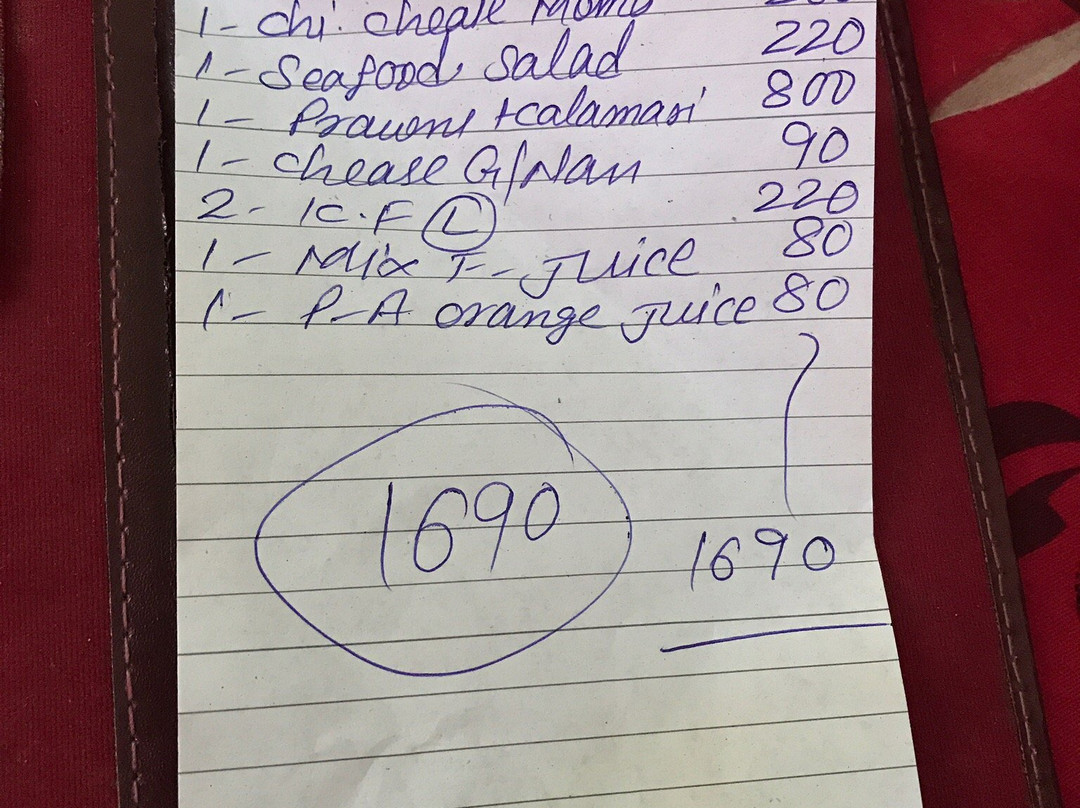 1- chi. chease Momo 200
1- Seafood Salad 220
1- Prawons +calamari 800
1- chease G/Nan 90
2- K.F (L) 220
1- Mix F- Juice 80
1- P-A orange Juice 80
1690
1690